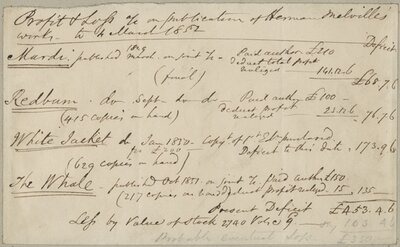 Profit & Loss a/c on publication of Herman Melville's
works - to 4 March 1852
Deficit
Mardi, published March 1849 on joint a/c - Paid author £210
deduct total profit
realized 141.12.6 £68.7.6
(final)
Redburn do Sept do do - Paid author £100 -
deduct profit
realized 23.12.6 76.7.6
(415 copies on hand)
White Jacket do Jany 1850 - Copyt of 1st Ed. purchased
for £200 Deficit to this date 173.9.6
(629 copies on hand)
The Whale - published Oct 1851 on joint a/c paid author £150
(217 copies on hand) deduct profit realized 15 135
Present Deficit £453.4.6
Less by Value of Stock 2740 Vols @
Probable eventual loss £350